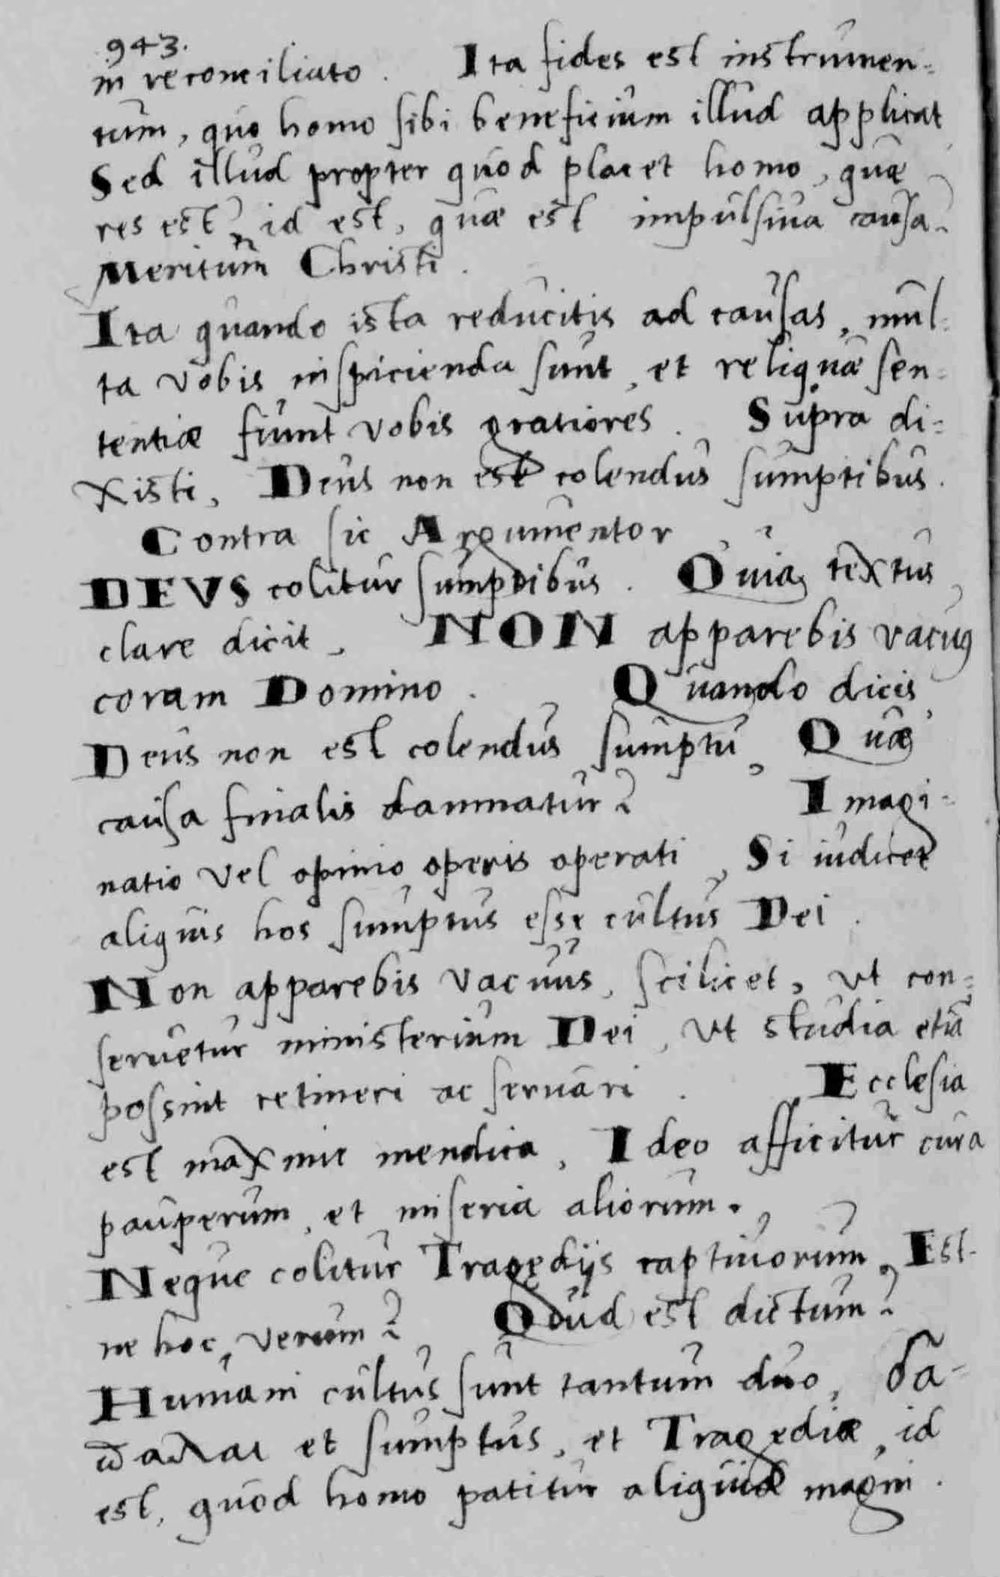 943.
in reconciliato. Ita fides est instrumen=
tum, quo homo sibi beneficium illud applicat
Sed illud propter quod placet homo, quæ
res est? id est, quæ est impulsiua causa?
Meritum Christi.
Ita quando ista reducitis ad causas, mul=
ta vobis inspicienda sunt, et reliquæ sen=
tentiæ fiunt vobis gratiores. Supra di=
xisti, Deus non est colendus sumptibus.
Contra sic Argumentor,
DEVS colitur sumptibus. Quia textus
clare dicit, NON apparebis vacuus
coram Domino. Quando dicis,
Deus non est colendus sumptu, Quæ
causa finalis damnatur? Imagi=
natio vel opinio operis operati, Si iudicet
aliquis hos sumptus esse cultus Dei.
Non apparebis vacuus, scilicet, ut con=
seruetur ministerium Dei, ut studia etiã
possint retineri ac seruari. Ecclesia
est maxime mendica, Ideo afficitur cura
pauperum, et miseria aliorum.
Neque colitur Tragedijs captiuorum, Est=
ne hoc verum? Quid est dictum?
Humani cultus sunt tantum duo,
et sumptus, et Tragediæ, id
est, quod homo patitur aliquid magni.